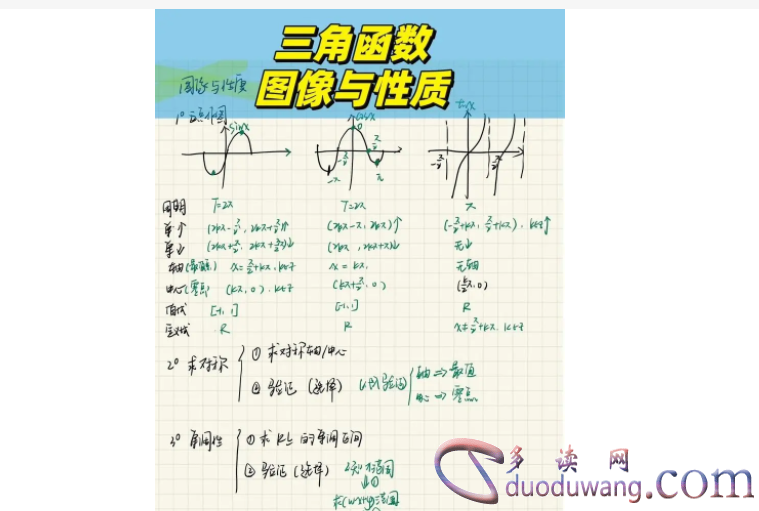 三角函数
图像与性质
图像与性质
1° 五点作图
sinx cosx tanx
-π/2 π/2
-π π
-π/2 π/2
周期 T=2π T=2π π
单个 (2kπ-π/2, 2kπ+π/2)↑ (2kπ-π, 2kπ)↑ (-π/2+kπ, π/2+kπ), k∈Z↑
单↓ (2kπ+π/2, 2kπ+3π/2)↓ (2kπ, 2kπ+π)↓ 无↓
轴(最值) x=π/2+kπ, k∈Z x=kπ, 无轴
中心(零点) (kπ,0), k∈Z (kπ+π/2,0) (k/2π,0)
值域 [-1,1] [-1,1] R
定义域 R R x≠π/2+kπ, k∈Z
2° 求对称 ① 求对称轴/中心
② 验证 (选择) 代入验证 轴⇒最值
中心⇒零点
3° 单调性 ① 求R上的单调区间
② 验证 (选择) 已知x范围
↓
求(wx+φ)范围
多读网
duoduwang.com